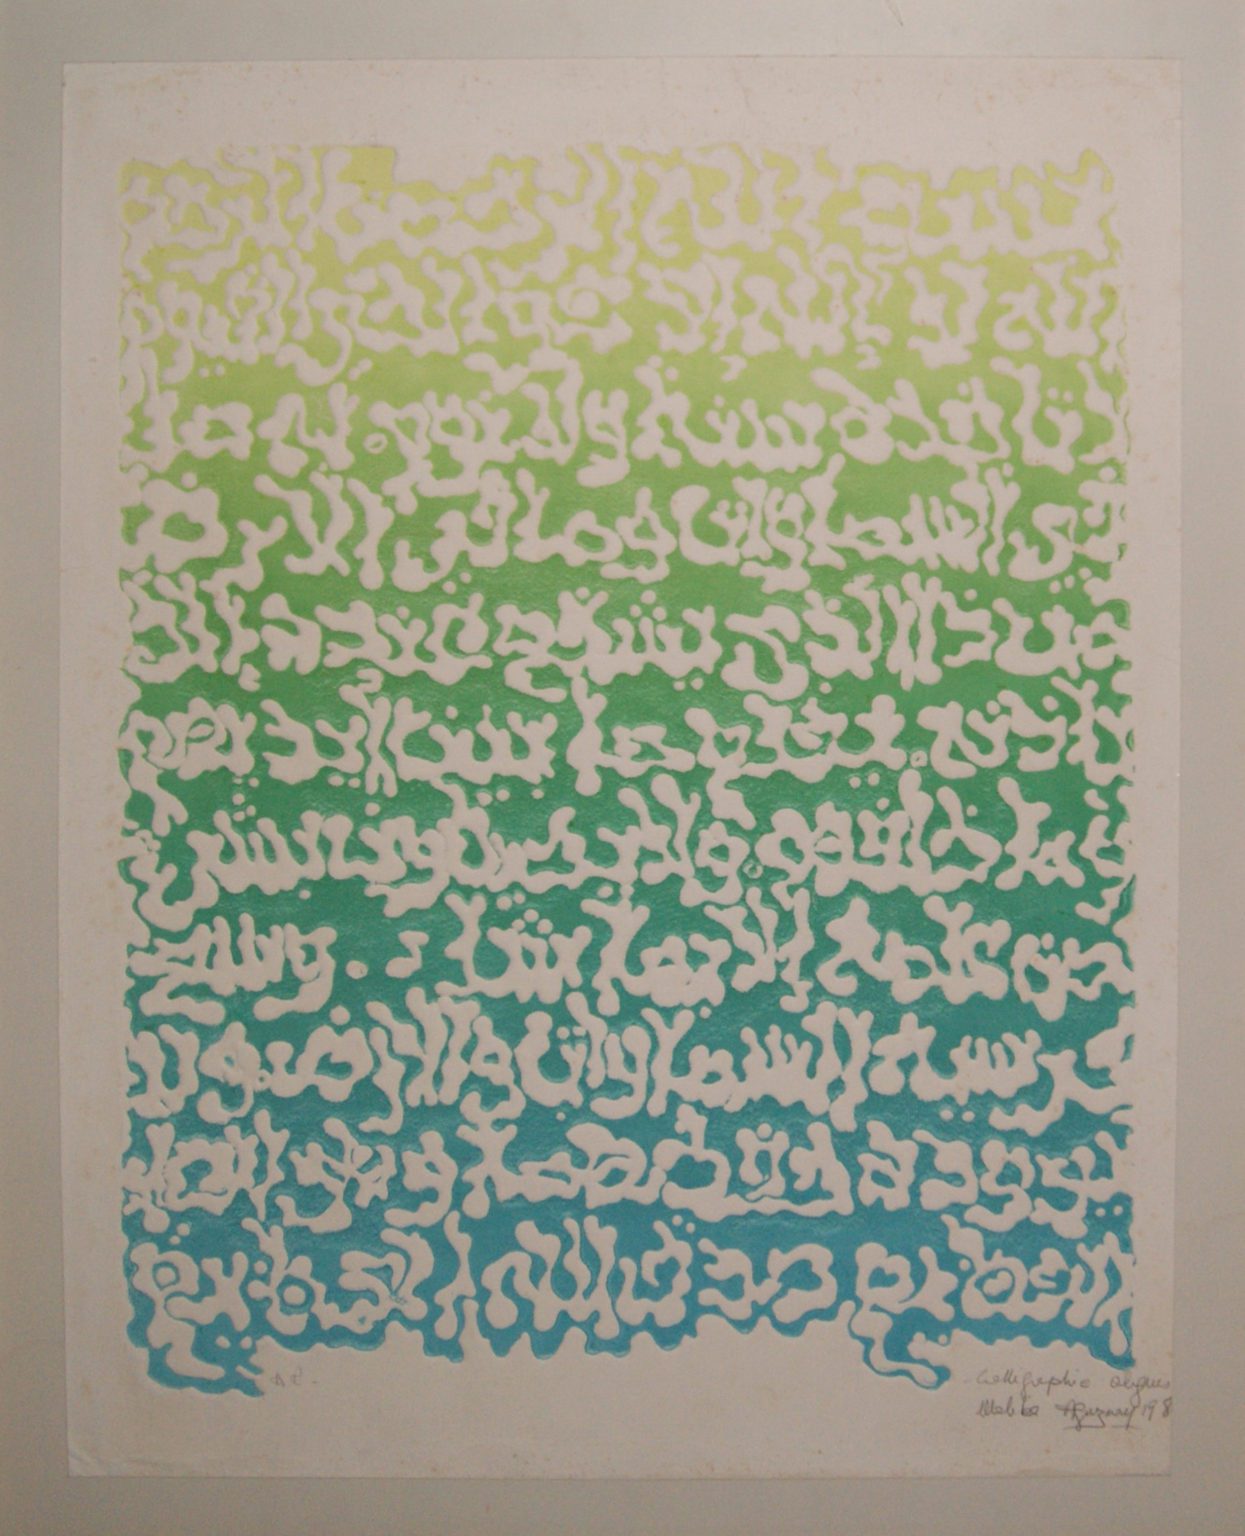 بسم الله الرحمان الرحيم
الله لا إلاه إلا هو الحي القيوم
لا تاخذه سنة ولا نوم له ما
في السماوات وما في الارض
من ذا الذي يشفع عنده إلا
باذنه يعلم ما بين أيديهم
وما خلفهم ولا يحيطون بشيء
من علمه إلا بما شاء . وسع
كرسيه السماوات والارض ولا
يوده حفظهما وهو العلي
العظيم صدق الله العظيم
Calligraphie
Malika Agueznay 198